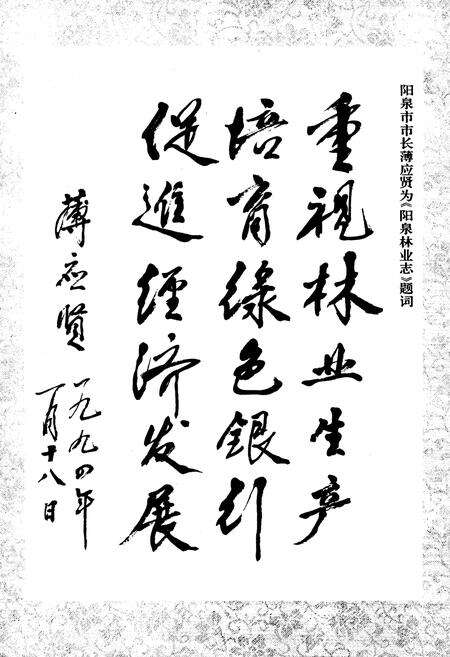 阳泉市市长薄应贤为《阳泉林业志》题词
重視林业生产
培育绿色銀行
促進經济发展
薄应贤
一九九四年
一月十八日